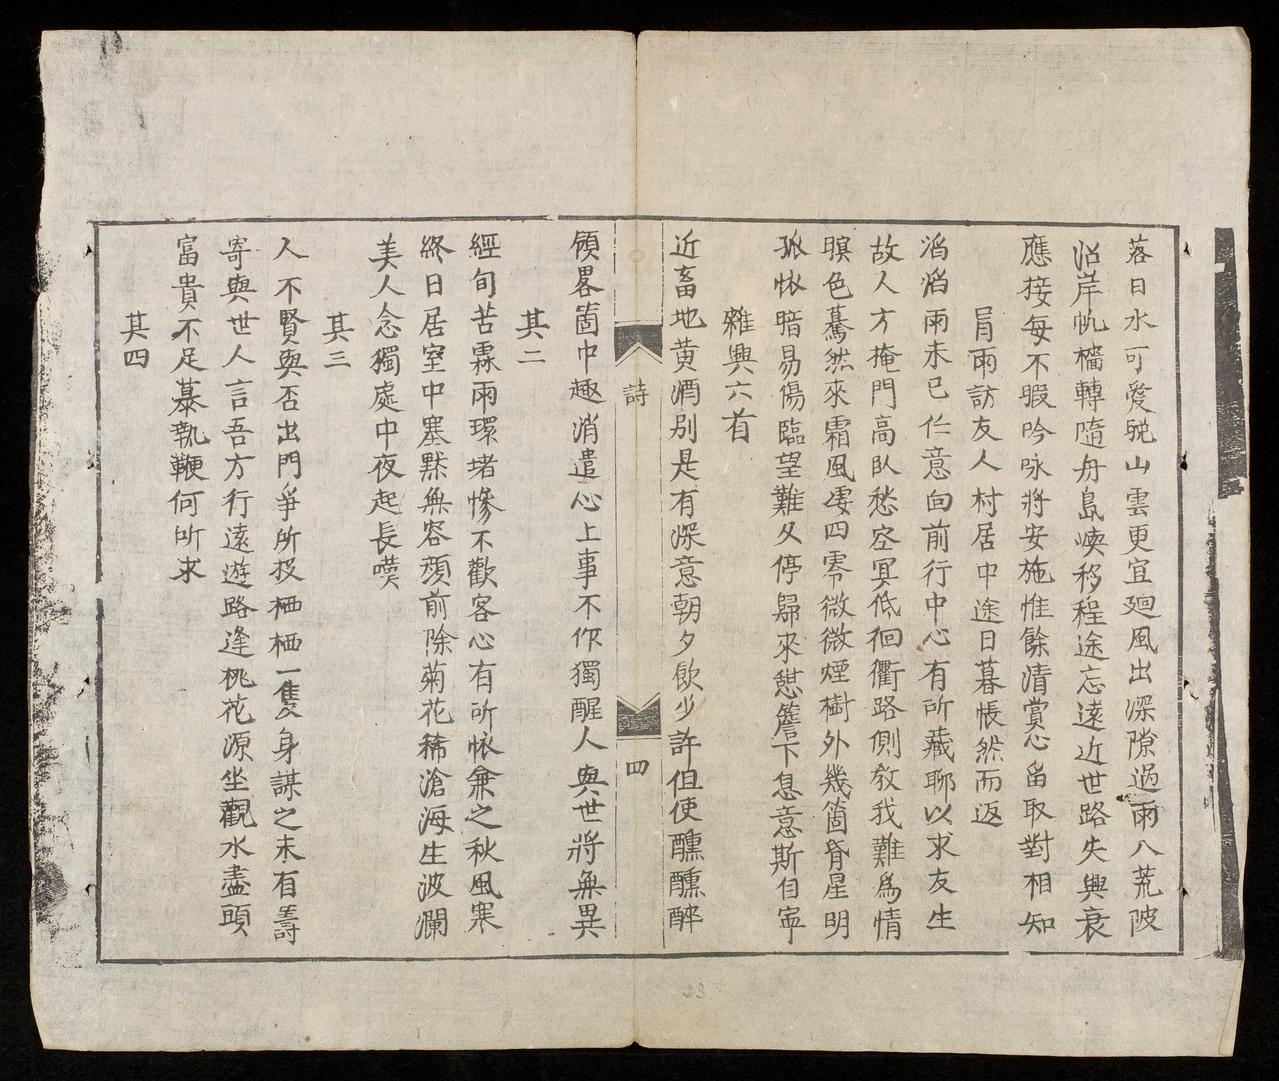 落日水可愛晩山雲更宜廻風出深隙過雨入荒陂
沿岸帆檣轉隨舟島嶼移程途忘遠近世路失興衰
應接每不暇吟咏將安施惟餘清賞心留取對相知
冐雨訪友人村居中途日暮悵然而返
滔滔雨未已仁意向前行中心有所藏聊以求友生
故人方掩門高臥愁空冥低徊衢路側教我難爲情
暝色驀然來霜風凄四零微微煙樹外幾箇昏星明
孤懷暗易傷臨望難久停歸來憇簷下息意斯自寧
雜興六首
近畜地黄酒別是有深意朝夕飲少許但使醺醺醉
詩
四
領畧箇中趣消遣心上事不作獨醒人與世將無異
其二
經旬苦霖雨環堵慘不歡客心有所懷兼之秋風寒
終日居室中塞黙無容顔前除菊花稀滄海生波瀾
美人念獨處中夜起長嘆
其三
人不賢與否出門爭所投栖栖一隻身謀之未有籌
寄與世人言吾方行遠遊路逢桃花源坐觀水盡頭
富貴不足慕執鞭何所求
其四